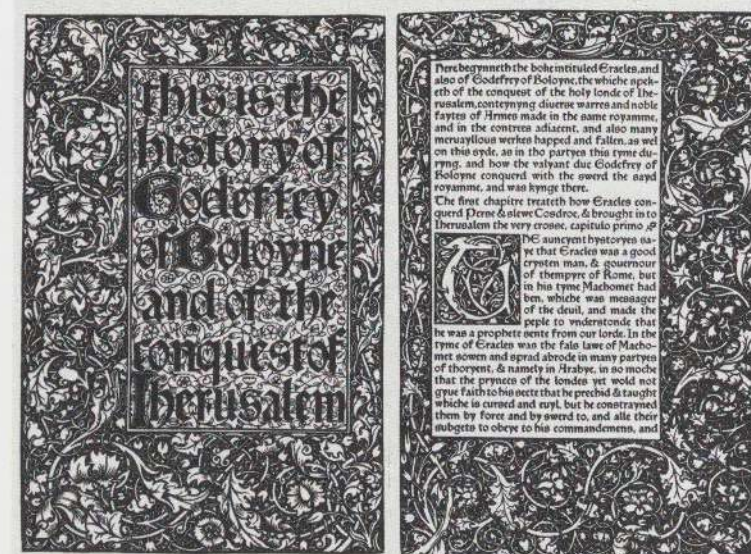 this is the
history of
Godeffrey
of Boloyne
and of the
conquest of
Iherusalem
Here begynneth the boke intituled Eracles, and
also of Godefrey of Boloyne, the whiche spek-
eth of the conquest of the holy londe of Ihe-
rusalem, conteynyng diuerse warres and noble
faytes of Armes made in the same royamme,
and in the contrees adiacent, and also many
meruayllous werkes happed and fallen, as wel
on this syde, as in tho partyes this tyme du-
ryng, and how the valyant duc Godefrey of
Boloyne conquerd with the swerd the sayd
royamme, and was kynge there.
The first chapitre treateth how Eracles con-
querd Perse & slewe Cosdroe, & brought in to
Iherusalem the very crosse, capitulo primo
THE auncyent hystoryes sa-
ye that Eracles was a good
crysten man, & gouernour
of thempyre of Rome, but
in his tyme Machomet had
ben, whiche was messager
of the deuil, and made the
peple to vnderstonde that
he was a prophete sente from our lorde. In the
tyme of Eracles was the fals lawe of Macho-
met sowen and sprad abrode in many partyes
of thoryent, & namely in Arabye, in so moche
that the prynces of the londes yet wold not
gyue faith to his secte that he prechid & taught
whiche is cursed and euyl, but he constrayned
them by force and by swerd to, and alle their
subgets to obeye to his commandemens, and